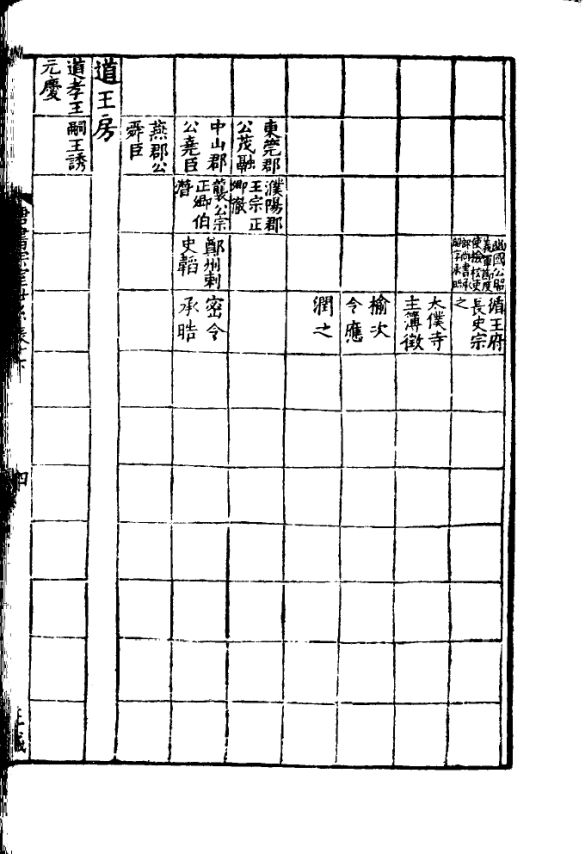 義軍節度
使檢校吏
部尚書承
循王府
長史宗
之
太僕寺
主簿徵
榆次
令應
潤之
東莞郡
公茂融
濮陽郡
王宗正
卿徹
中山郡
公堯臣
襲公宗
正卿伯
潛
鄭州刺
史韜
密令
承晧
燕郡公
舜臣
道王房
道孝王
元慶
嗣王誘
四